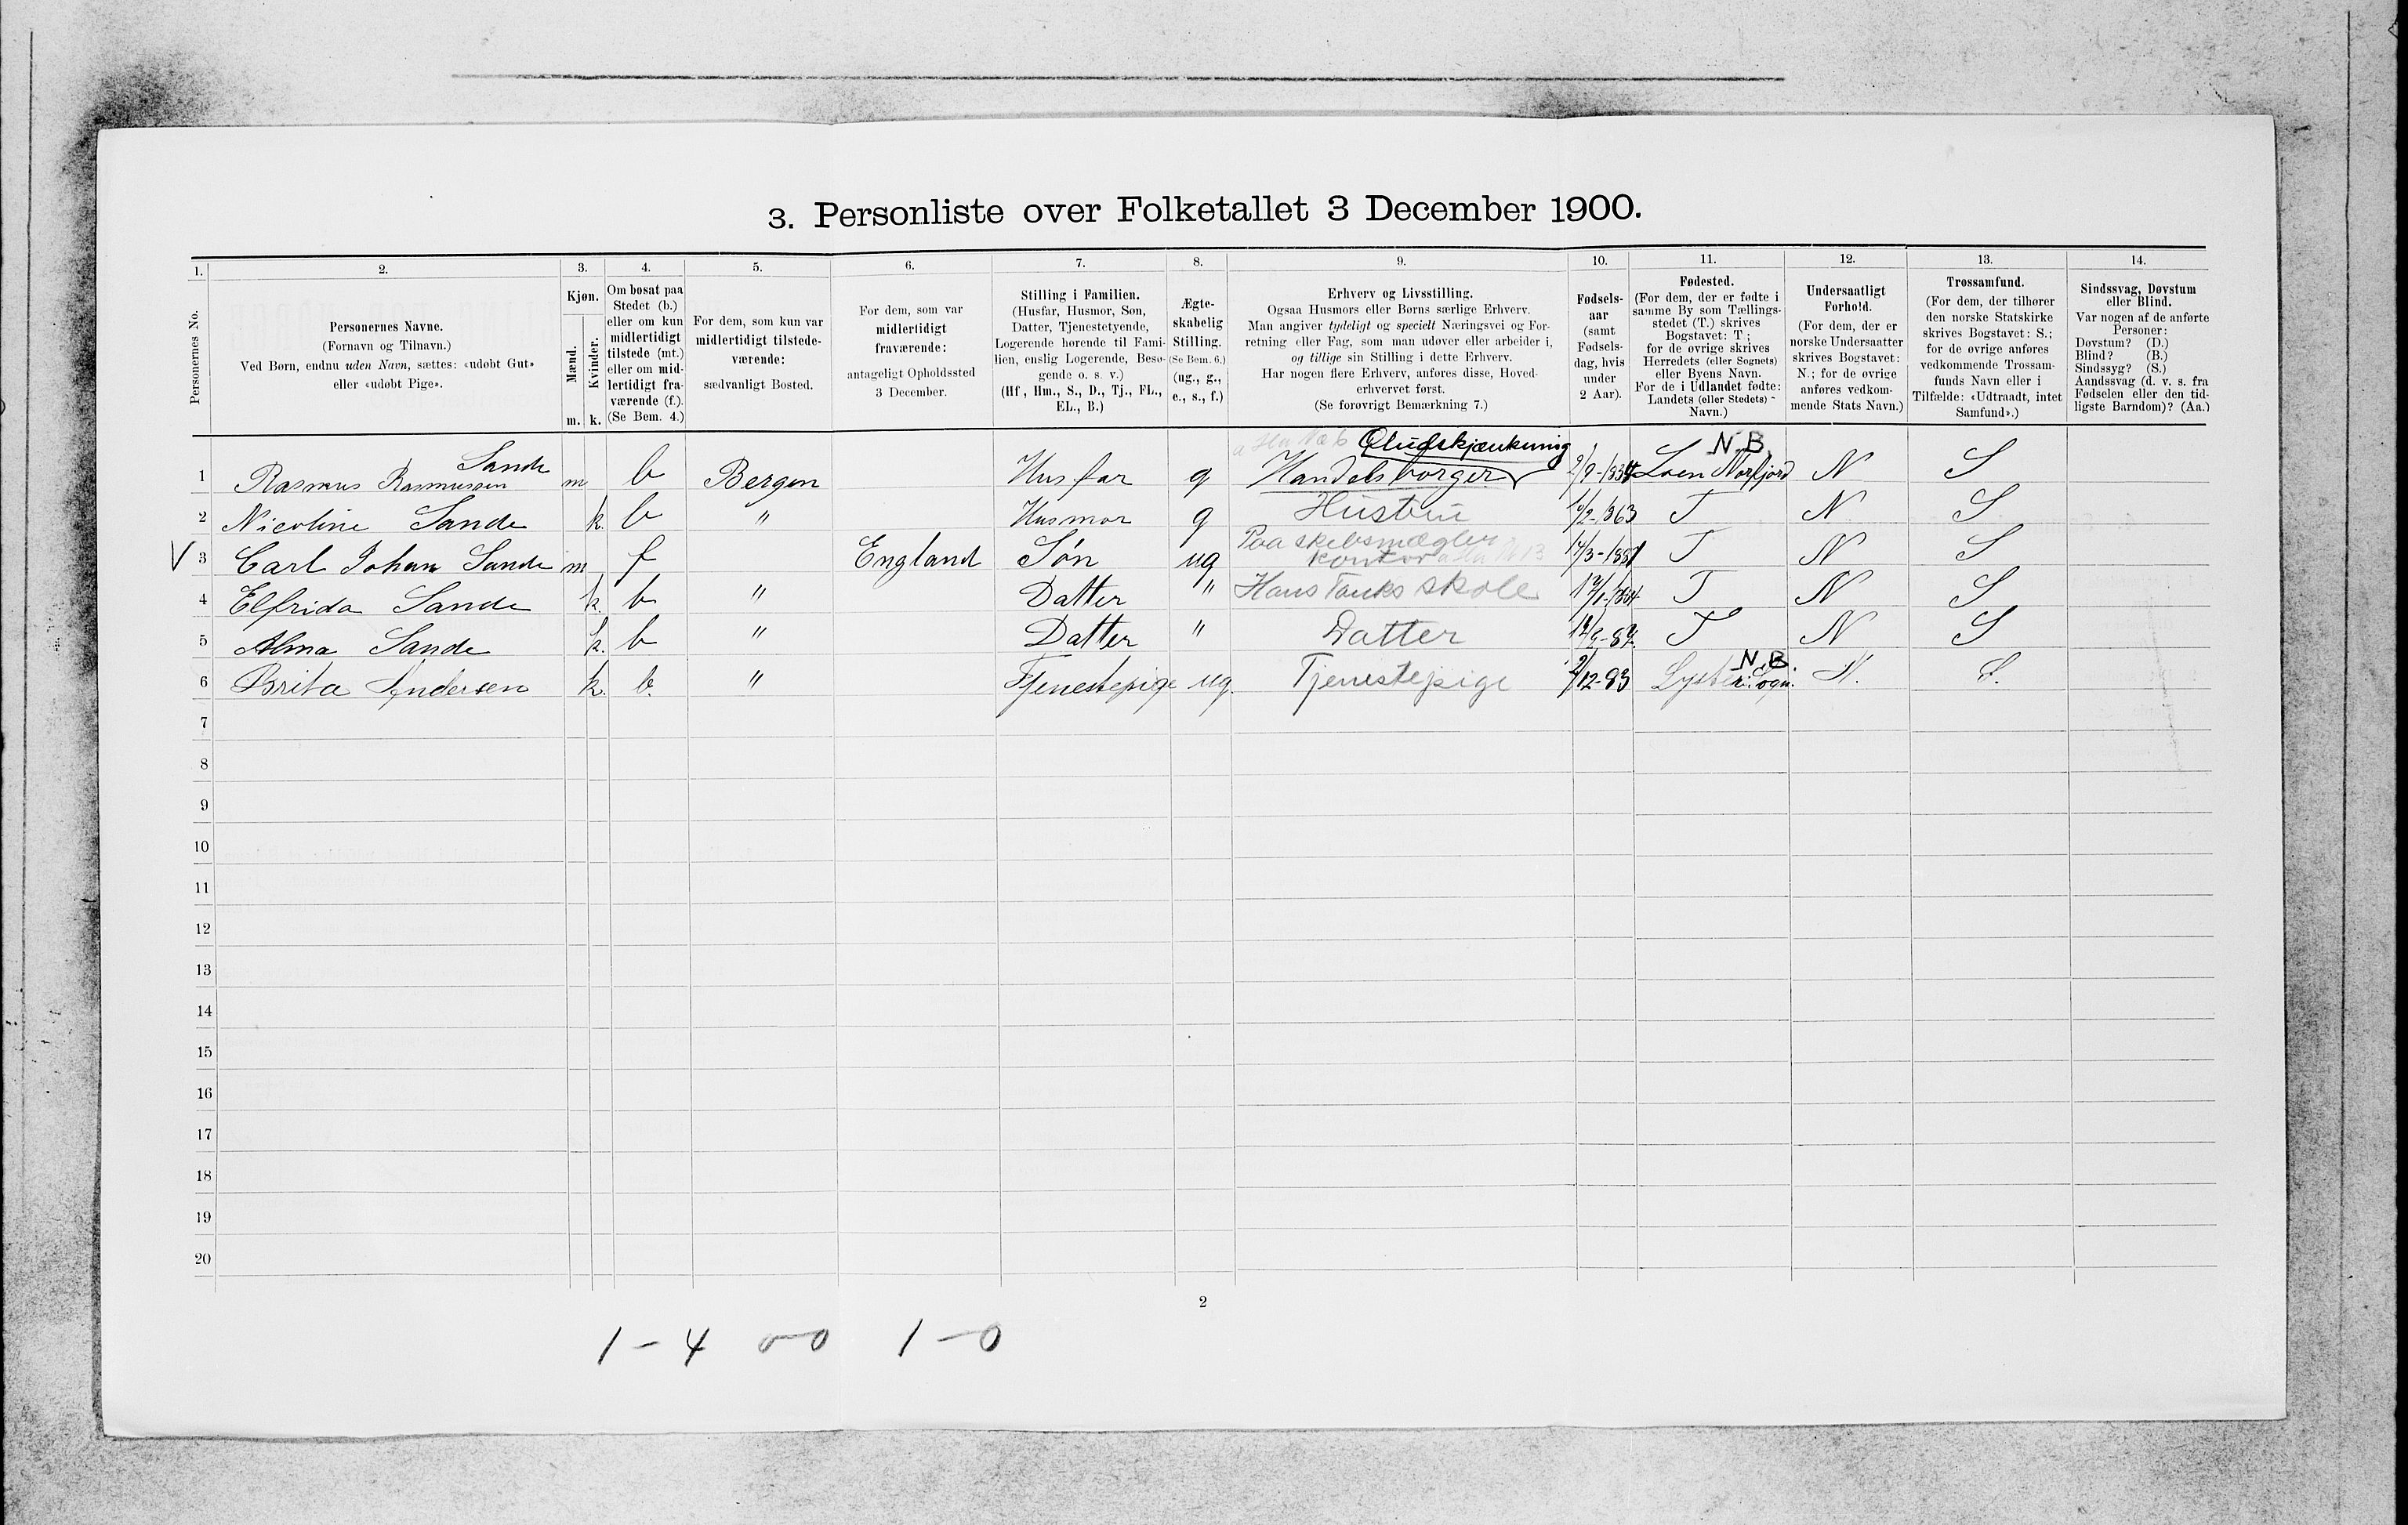 3. Personliste over Folketallet 3 December 1900.
1. 2. 3. 4. 5. 6. 7. 8. 9. 10. 11. 12. 13. 14.
Personernes No.
Personernes Navne.
(Fornavn og Tilnavn.)
Ved Børn, endnu uden Navn, sættes: «udøbt Gut»
eller «udøbt Pige».
Kjøn.
Mænd.
Kvinder.
m. k.
Om bosat paa
Stedet (b.)
eller om kun
midlertidigt
tilstede (mt.)
eller om mid-
lertidigt fra-
værende (f.).
(Se Bem. 4.)
For dem, som kun var
midlertidigt tilstede-
værende:
sædvanligt Bosted.
For dem, som var
midlertidigt
fraværende:
antageligt Opholdssted
3 December.
Stilling i Familien.
(Husfar, Husmor, Søn,
Datter, Tjenestetyende,
Logerende hørende til Fami-
lien, enslig Logerende, Besø-
gende o. s. v.)
(Hf., Hm., S., D., Tj., FL.,
EL., B.)
Ægte-
skabelig
Stilling.
(Se Bem. 6.)
(ug., g.,
e., s., f.)
Erhverv og Livsstilling.
Ogsaa Husmors eller Børns særlige Erhverv.
Man angiver tydeligt og specielt Næringsvei og For-
retning eller Fag, som man udøver eller arbeider i,
og tillige sin Stilling i dette Erhverv.
Har nogen flere Erhverv, anføres disse, Hoved-
erhvervet først.
(Se forøvrigt Bemærkning 7.)
Fødsels-
aar
(samt
Fødsels-
dag, hvis
under
2 Aar).
Fødested.
(For dem, der er fødte i
samme By som Tællings-
stedet (T.) skrives
Bogstavet: T;
for de øvrige skrives
Herredets (eller Sognets)
eller Byens Navn.
For de i Udlandet fødte:
Landets (eller Stedets)
Navn.)
Undersaatligt
Forhold.
(For dem, der er
norske Undersaatter
skrives Bogstavet:
N.; for de øvrige
anføres vedkom-
mende Stats Navn.)
Trossamfund.
(For dem, der tilhører
den norske Statskirke
skrives Bogstavet: S.;
for de øvrige anføres
vedkommende Trossam-
funds Navn eller i
Tilfælde: «Udtraadt, intet
Samfund».)
Sindssvag, Døvstum
eller Blind.
Var nogen af de anførte
Personer:
Døvstum? (D.)
Blind? (B.)
Sindssyg? (S.)
Aandssvag (d. v. s. fra
Fødselen eller den tid-
ligste Barndom)? (Aa.)
Sande Øludskjænkning N.B.
1 Rasmus Rasmussen m b Bergen Husfar g Handelsborger Loen Norfjord N S
2 Nicoline Sande k. b " Husmor g Hustru T N S
Paa skibsmægler
V 3 Carl Johan Sande m f England Søn ug kontor T N S
4 Elfrida Sande k. b " Datter " Hans Tanks skole T N S
5 Alma Sande k. b " Datter " Datter T N S
N.B.
6 Brita Andersen k. b. " Tjenestepige ug. Tjenestepige 2/12-83 Lyster i Sogn. N. S.
7
8
9
10
11
12
13
14
15
16
17
18
19
20
2
1-4 0-0 1-0